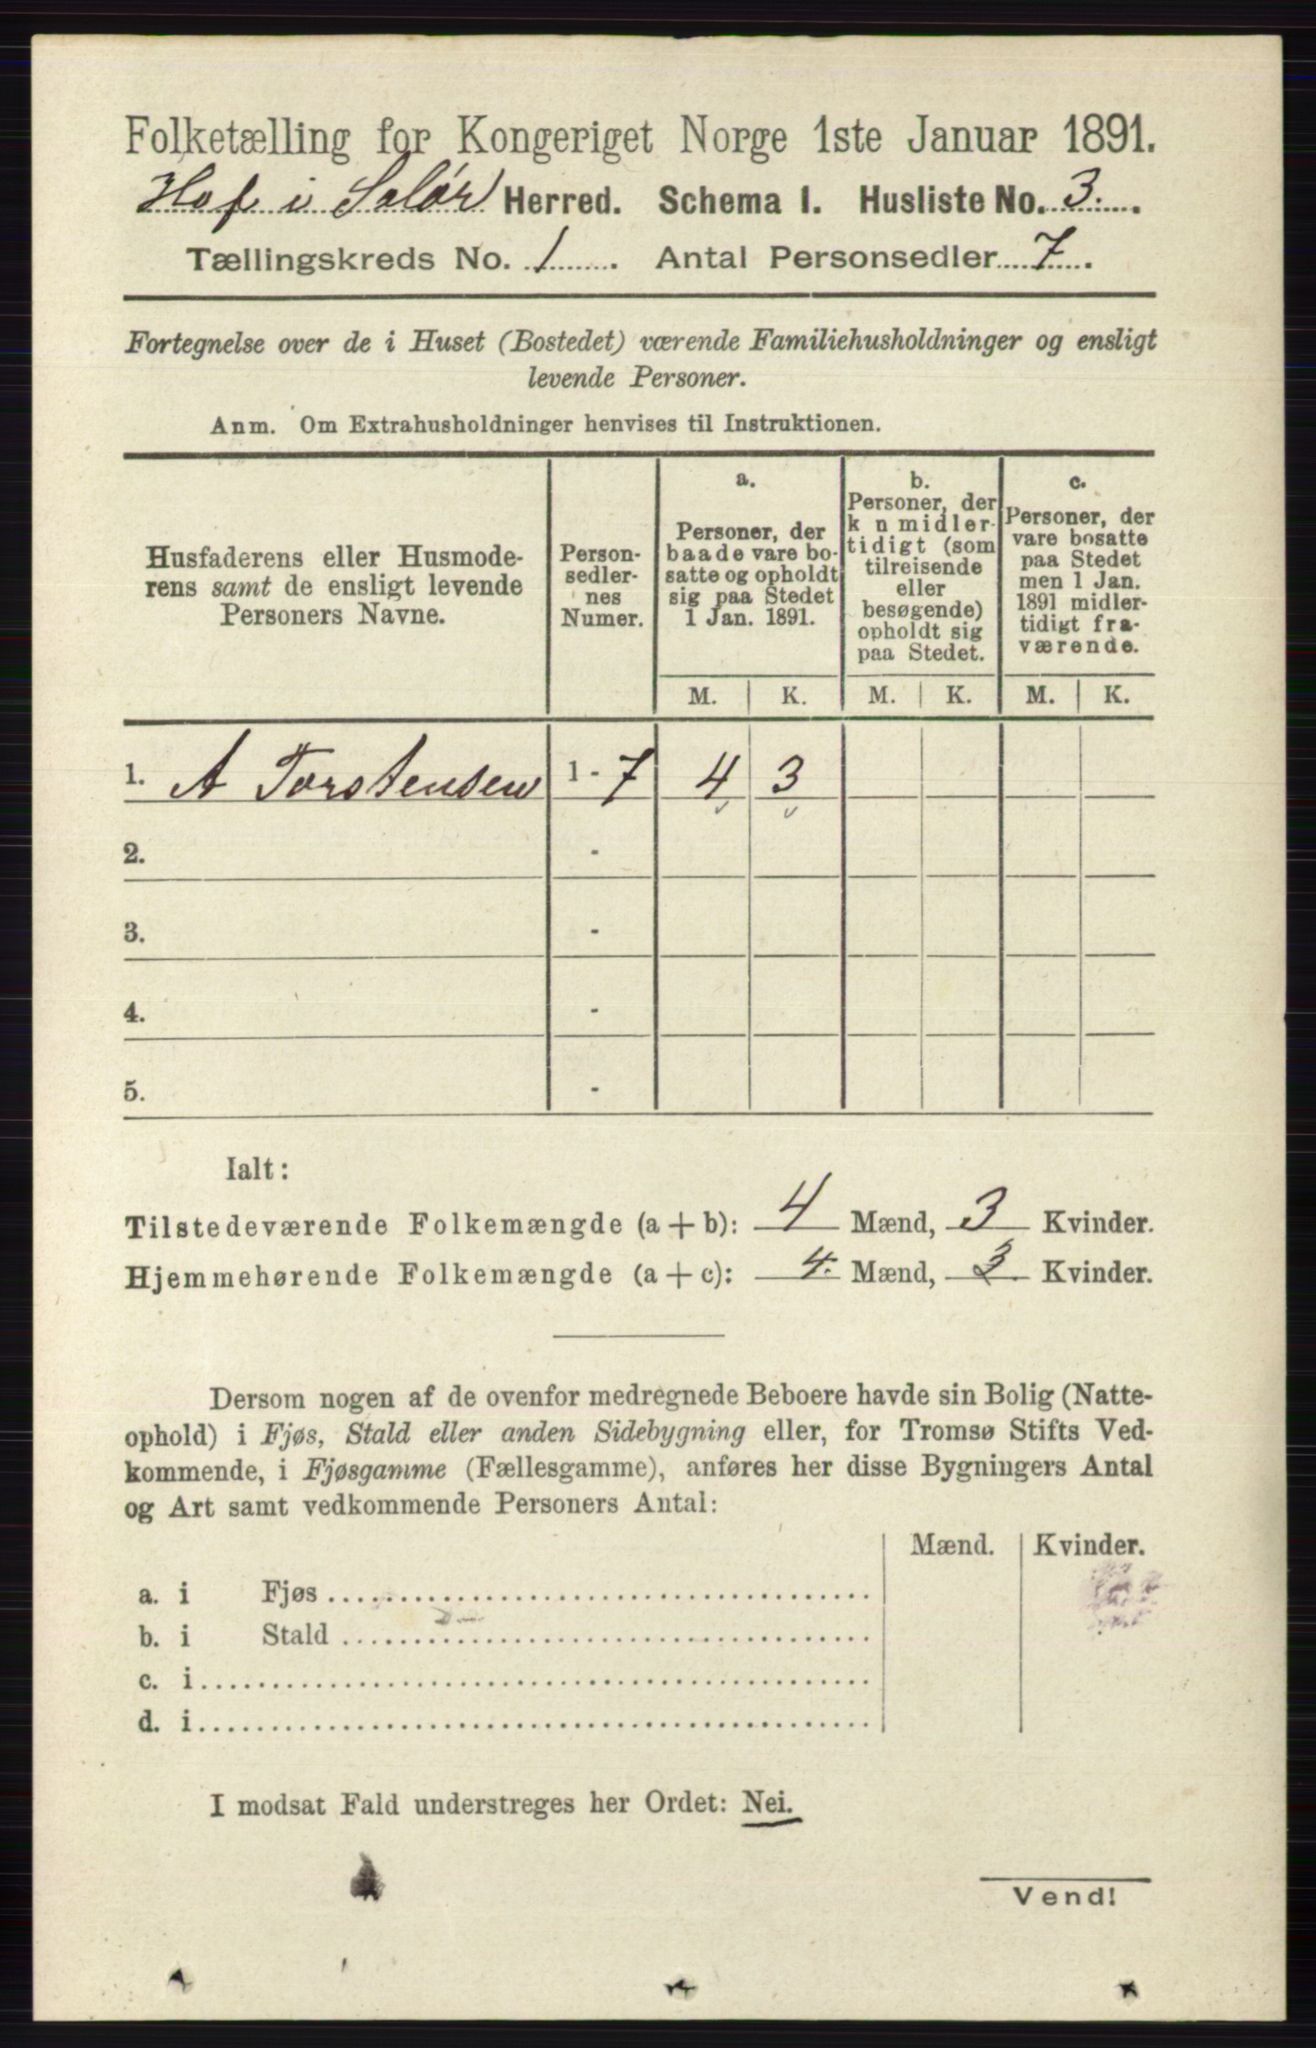 Folketælling for Kongeriget Norge 1ste Januar 1891.
Hof i Solør Herred. Schema I. Husliste No. 3.
Tællingskreds No. 1. Antal Personsedler 7.
Fortegnelse over de i Huset (Bostedet) værende Familiehusholdninger og ensligt
levende Personer.
Anm. Om Extrahusholdninger henvises til Instruktionen.
Husfaderens eller Husmode-
rens samt de ensligt levende
Personers Navne.
Person-
sedler-
nes
Numer.
a.
Personer, der
baade vare bo-
satte og opholdt
sig paa Stedet
1 Jan. 1891.
b.
Personer, der
k n midler-
tidigt (som
tilreisende
eller
besøgende)
opholdt sig
paa Stedet.
c.
Personer, der
vare bosatte
paa Stedet
men 1 Jan.
1891 midler-
tidigt fra-
værende.
M. K. M. K. M. K.
1. A Torstensen 1 - 7 4 3
2. -
3. -
4. -
5. -
Ialt:
Tilstedeværende Folkemængde (a + b): 4 Mænd, 3 Kvinder.
Hjemmehørende Folkemængde (a + c): 4. Mænd, 3 Kvinder.
Dersom nogen af de ovenfor medregnede Beboere havde sin Bolig (Natte-
ophold) i Fjøs, Stald eller anden Sidebygning eller, for Tromsø Stifts Ved-
kommende, i Fjøsgamme (Fællesgamme), anføres her disse Bygningers Antal
og Art samt vedkommende Personers Antal:
Mænd. Kvinder.
a. i Fjøs
b. i Stald
c. i
d. i
I modsat Fald understreges her Ordet: Nei.
Vend!